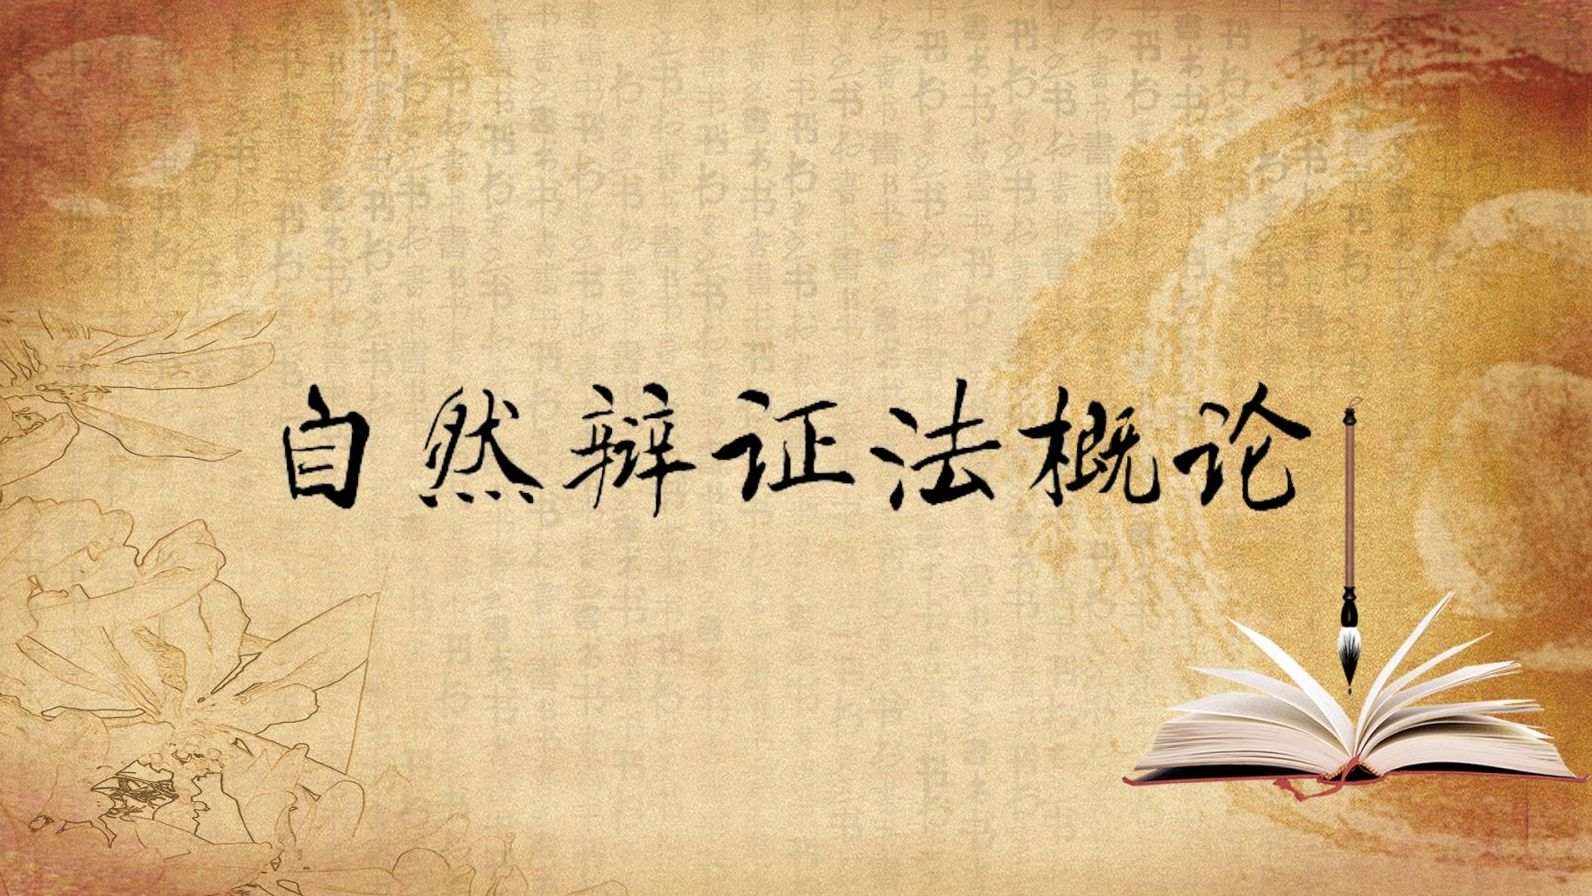 自然辩证法概论